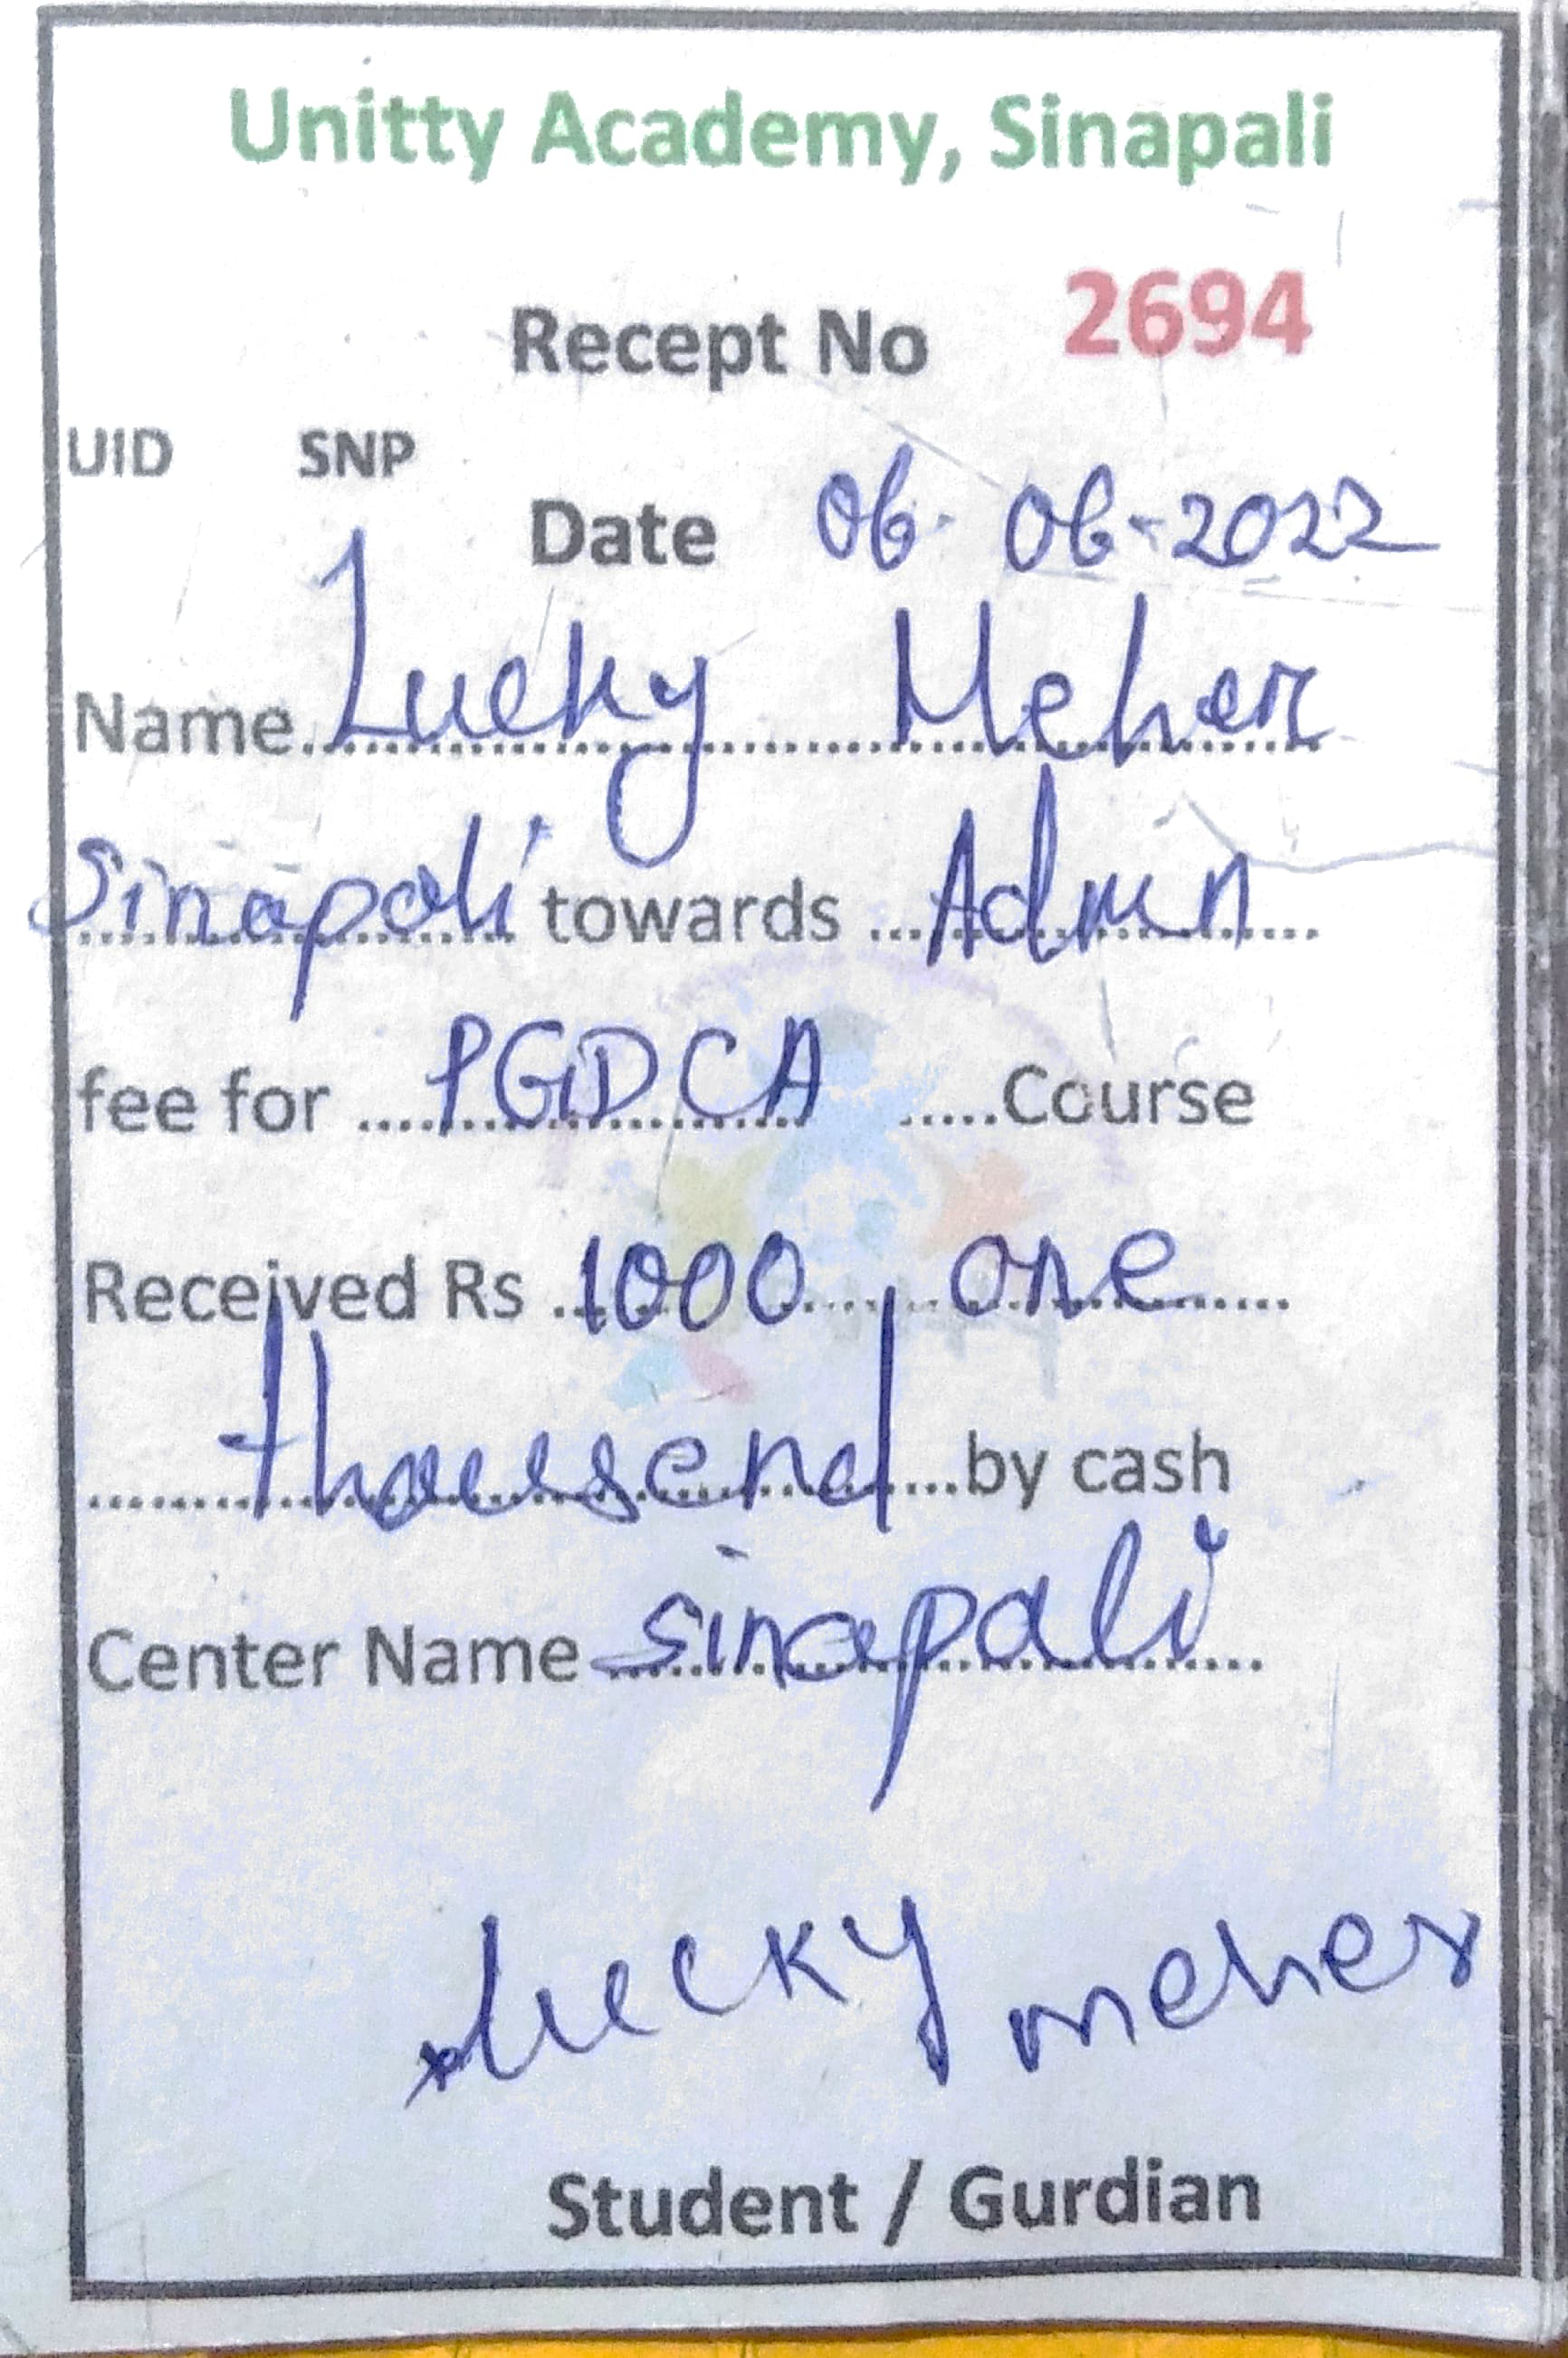 Unitty Academy, Sinapali
Recept No 2694
UID SNP
Date 06-06-2022
Name Lucky Meher
Sinapali towards Admn
fee for PGDCA Course
Received Rs 1000, one
thousend by cash
Center Name sinapali
Lucky meher
Student / Gurdian